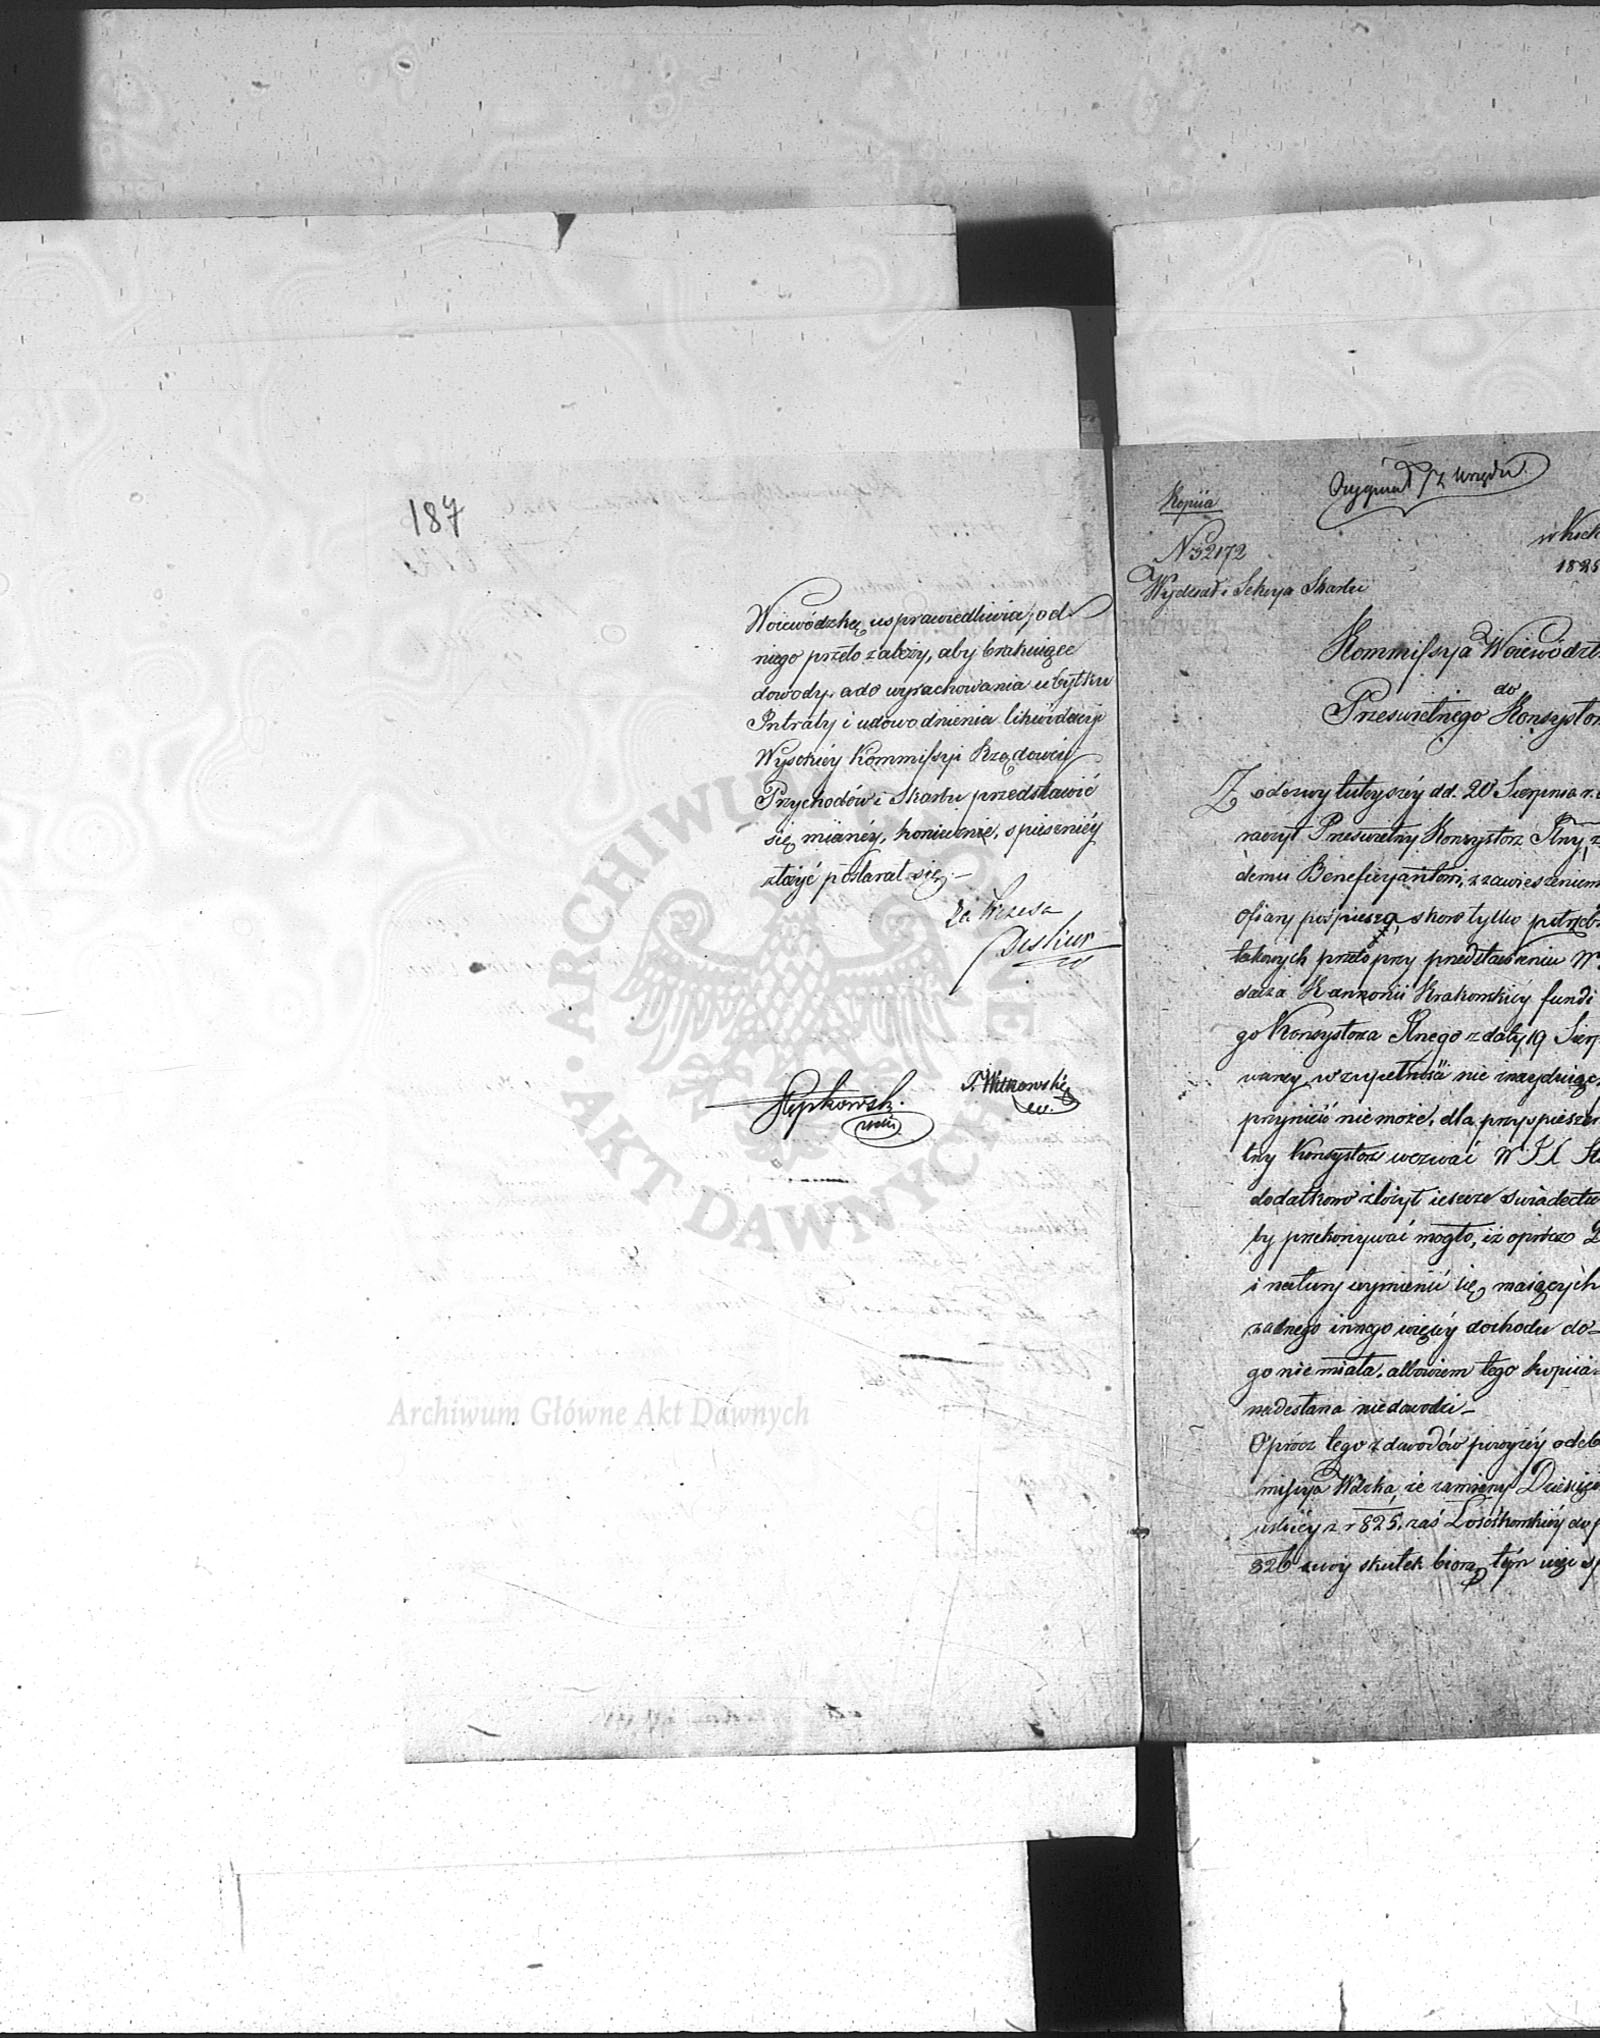 187
Woiewódzką usprawiedliwia, od
niego przeto zależy, aby brakuiące
dowody, a do wyrachowania ubytku
Intraty i udowodnienia likwidacyi
Wysokiéy Kommissyi Rządowéy
Przychodów i Skarbu przedstawić
się mianéy, koniecznie, spieszniéy
złożyć postarał się.
Za Prezesa
Deskur
Stępkowski
T. Witkowski
ARCHIWUM GŁÓWNE AKT DAWNYCH
Archiwum Główne Akt Dawnych
Kopiia
Oryginał z Urzędu
N 32172
w Kielc
1825
Wydział i Sekcya Skarbu
Kommissya Woiewódz
do
Prześwietnego Konsysto
Z odezwy tuteyszéy dd. 20 Sierpnia r.
raczył Prześwietny Konsystorz
demu Beneficyantowi, z zawieszeniem
ofiary pośpiesza, skoro tylko potrzeb
takowych przeto przy przedstawieniu W
Kanonii Krakowskiéy fundi
go Konsystorza z daty 19 Sierp
w zupełności nie znayduiąc
przynieść nie może, dla przyspiesze
tny Konsystorz wezwać W. J. X.
dodatkowo złożył ieszcze świadectw
by przekonywać mogło, iż oprócz
i natury wymienić się maiących
żadnego innego więcéy dochodu do-
go nie miała, albowiem tego kopiia
nadesłana niedowodzi _
Oprócz tego z dowodów powyżéy odeb
missya Wdzka, że zamiany Dziesięc
z r 825, zaś do
826 swóy skutek biorą, tym więc s